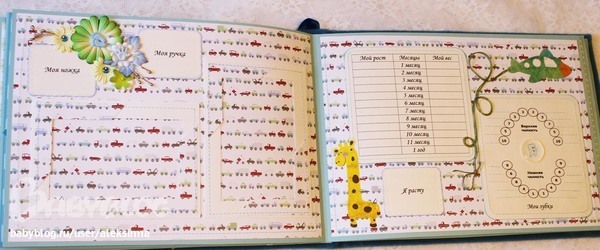 Моя ручка
Моя ножка
Мой рост Месяцы Мой вес
1 месяц
2 месяц
3 месяц
4 месяц
5 месяц
6 месяц
7 месяц
8 месяц
9 месяц
10 месяц
11 месяц
1 год
Я расту
Верхняя
челюсть
Нижняя
челюсть
Мои зубки
babyblog.ru/user/aleksinna